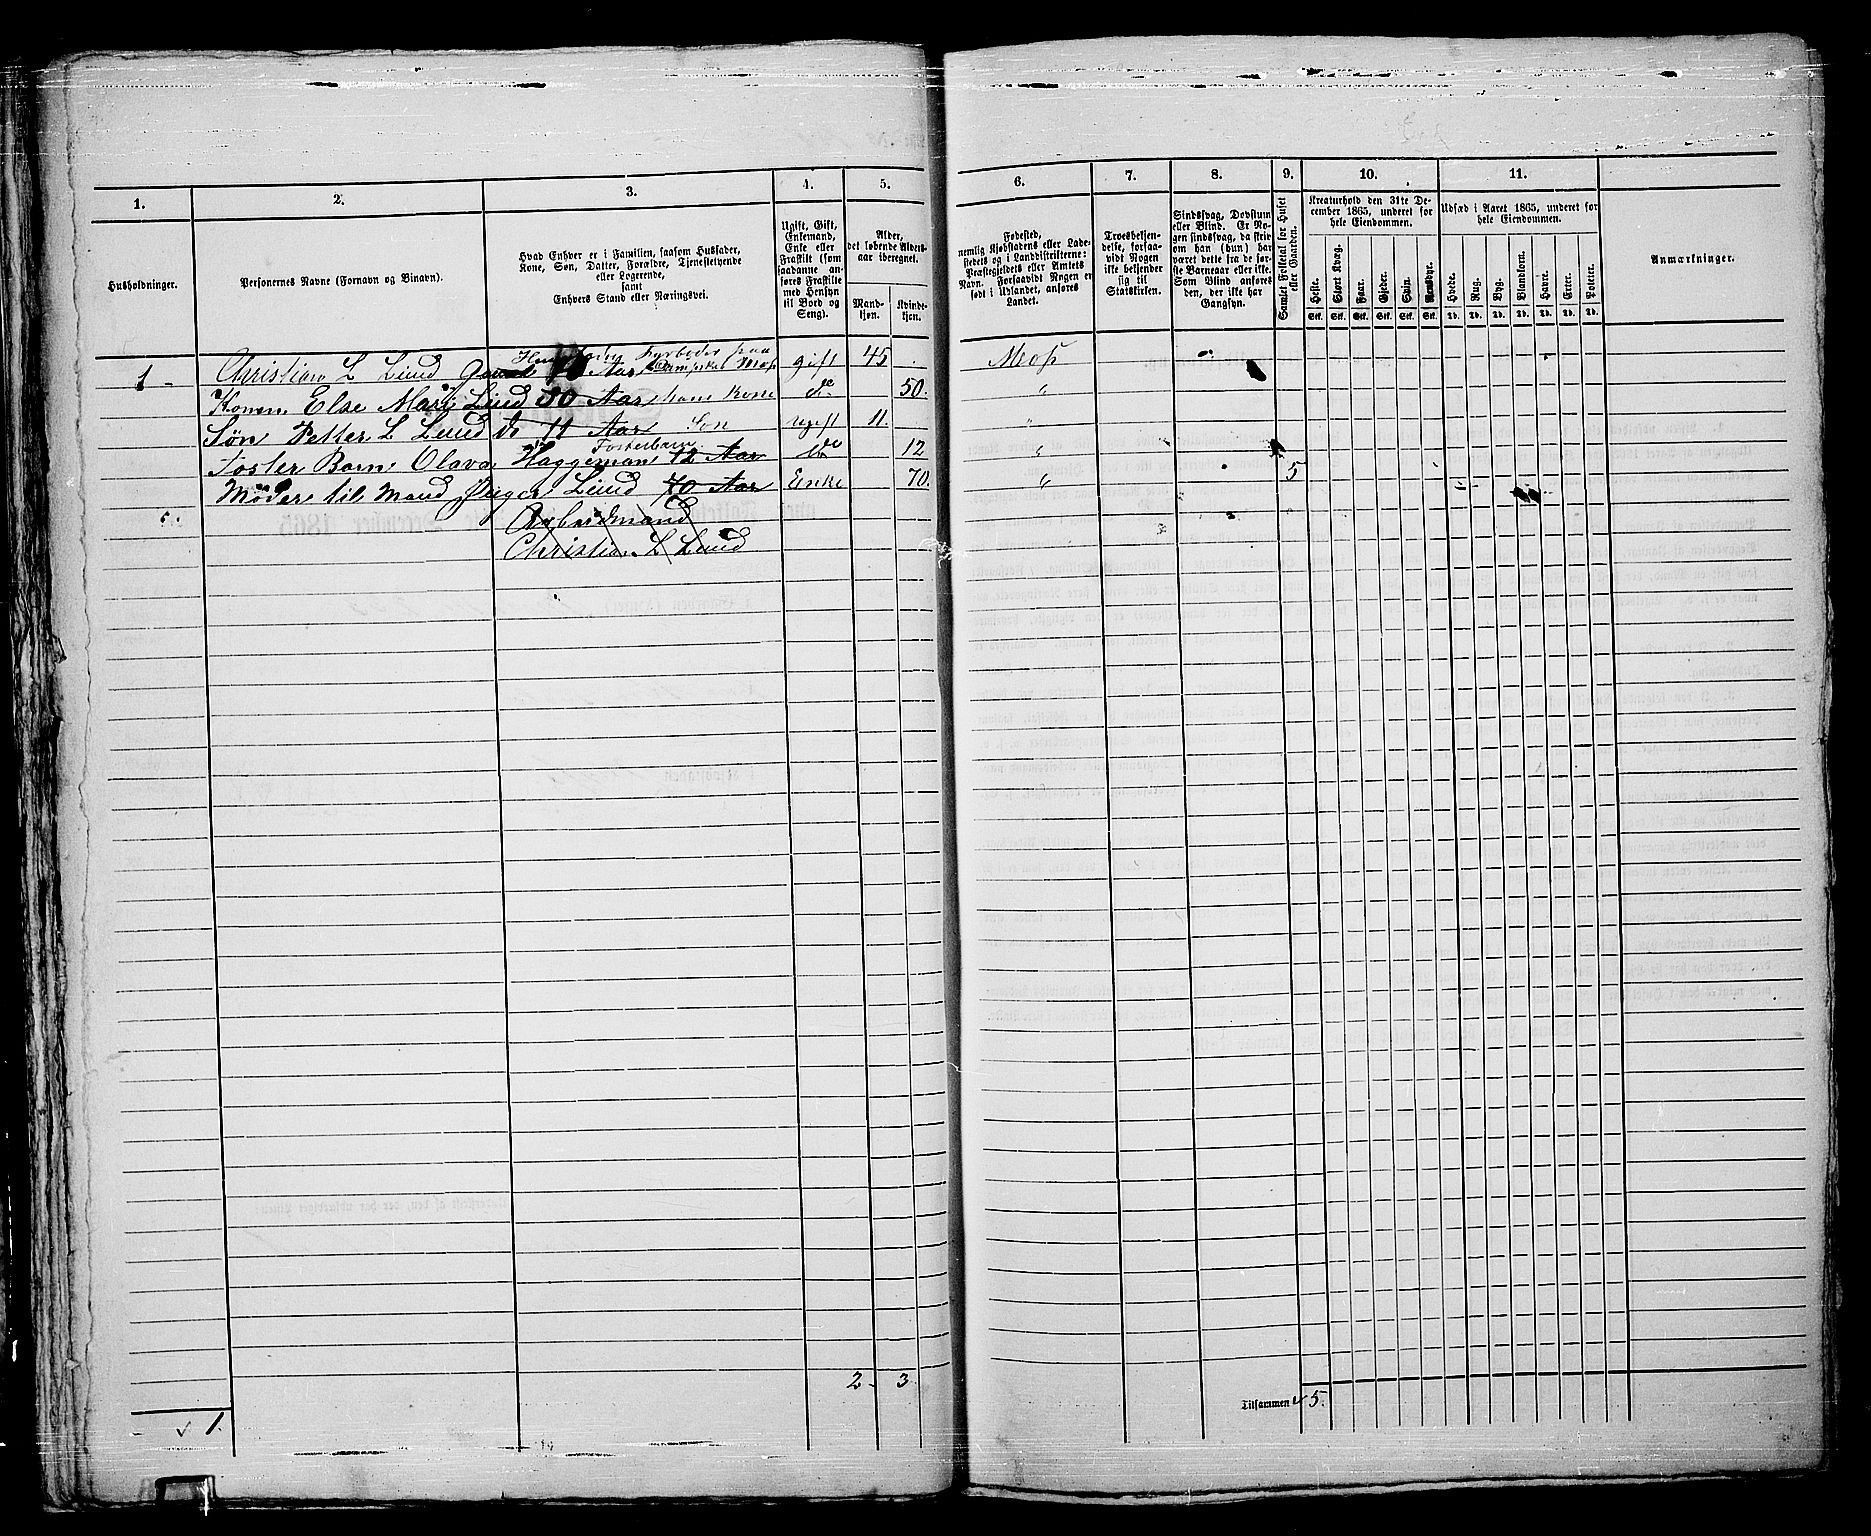 1. 2. 3. 4. 5. 6. 7. 8. 9. 10. 11.
Husholdninger.
Personernes Navne (Fornavn og Binavn).
Hvad Enhver er i Familien, saasom Husfader,
Kone, Søn, Datter, Forældre, Tjenestetyende
eller Logerende,
samt
Enhvers Stand eller Næringsvei.
Ugift, Gift,
Enkemand,
Enke eller
Fraskilt (som
saadanne an-
føres Fraskilte
med Hensyn
til Bord og
Seng).
Alder,
det løbende Alders-
aar iberegnet.
Mand-
kjøn.
Kvinde-
kjøn.
Fødested,
nemlig Kjøbstadens eller Lade-
stedets og i Landdistrikterne:
Præstegjeldets eller Amtets
Navn. Forsaavidt Nogen er
født i Udlandet, anføres
Landet.
Troesbekjen-
delse, forsaa-
vidt Nogen
ikke bekjender
sig til
Statskirken.
Sindssvag, Døvstum
eller Blind. Er No-
gen sindssvag, da skriv
om han (hun) har
været dette fra de før-
ste Barneaar eller ikke.
Som Blind anføres
den, der ikke har
Gangsyn.
Samlet Folketal for Huset
eller Gaarden.
Kreaturhold den 31te De-
cember 1865, underet for
hele Eiendommen.
Heste.
Stort Kvæg.
Faar.
Gjeder.
Svin.
Rensdyr.
Stk. Stk. Stk. Stk. Stk. Stk.
Udsæd i Aaret 1865, underet for
hele Eiendommen.
Hvede.
Rug.
Byg.
Blandkorn.
Havre.
Erter.
Poteter.
Td. Td. Td. Td. Td. Td. Td.
Anmærkninger.
Dampskib Moss
1 Christian L Lund Aar gift 45 Moss
Konen Else Mari Lund 50 Aar hans Kone do 50. "
Søn Petter L Lund do 11 Aar Søn ugift 11. "
Fosterbarn
Foster Barn Olava Haggeman 12 Aar do 12 "
Moder til Mand Inger Lund 70 Aar Enke 70. " 5
5. Arbeidmand
Christian L Lund
2 3
Tilsammen 5.
1.